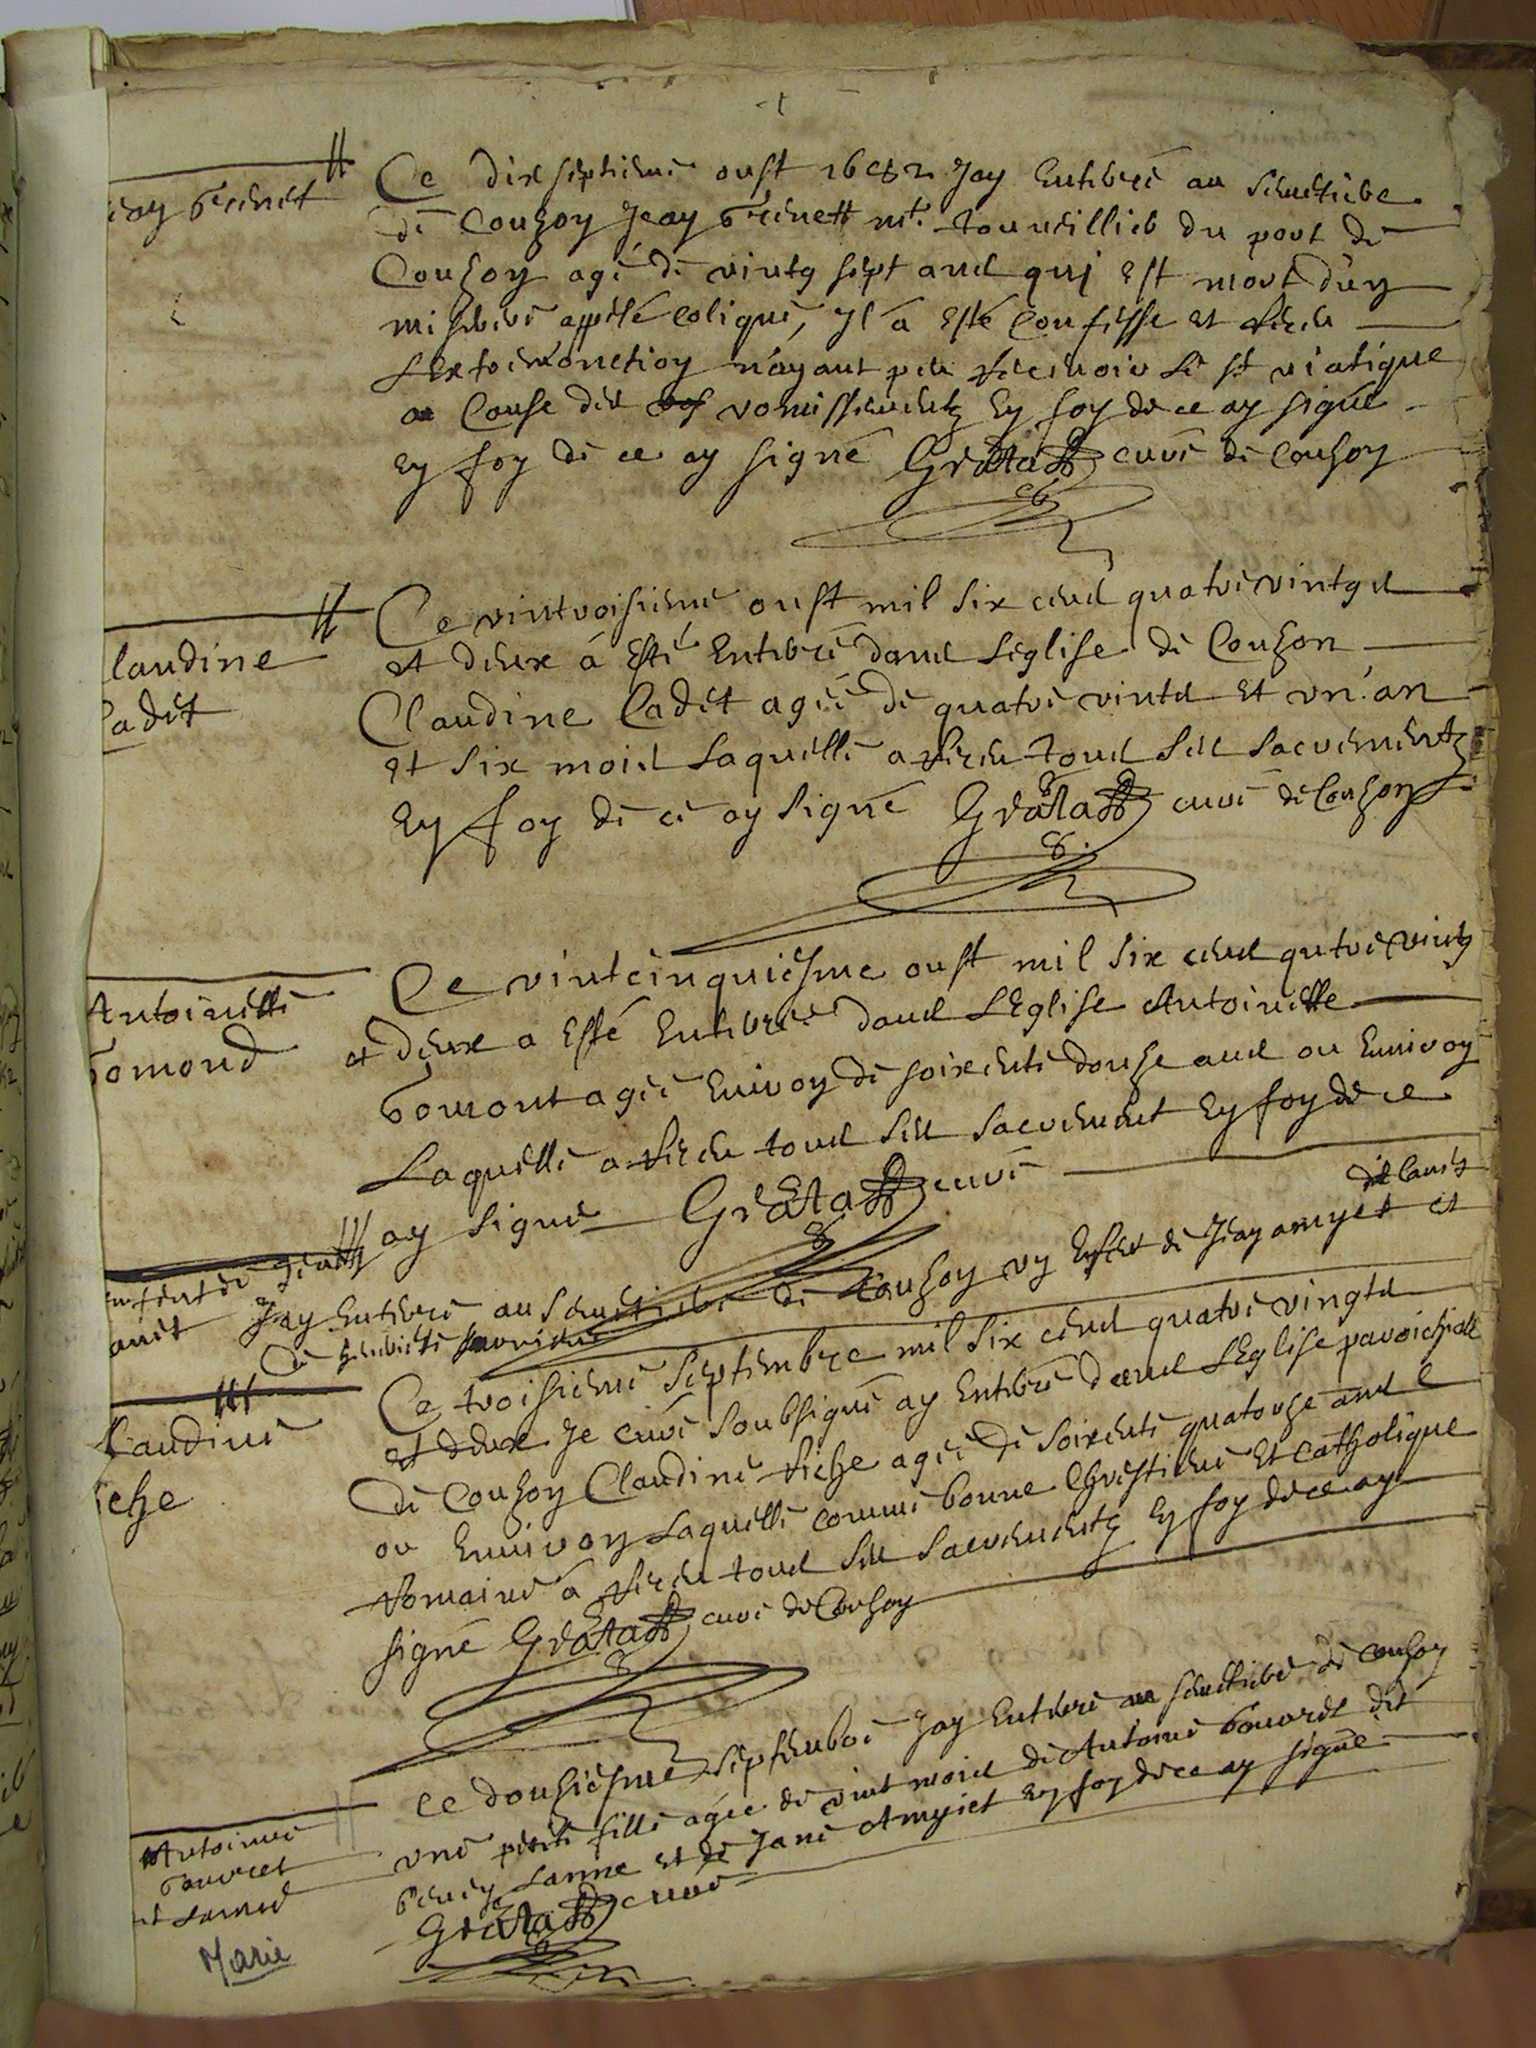 Jean Benet
Ce dixseptieme oust 1682 Jay Enterré au semetiere
de Couzon Jean Benett mtr. tourtillier du port de
Couzon agé de vintg sept ans qui est mort d'un
miserere appelé colique, Il á esté Confesse et receu
Lextremonction n'ayant peu recevoir le st viatique
a Cause des vomissements En foy de ce ay signé
En foy de ce ay signé Grata curé de Couzon
Claudine
Cadet
Ce vintroisieme oust mil six cens quatre vintgs
et deux á esté Enterré dans Léglise de Couzon
Claudine Cadet agée de quatre vints et un an
et six mois Laquelle a receu tous ses sacrements
En foy de ce ay signé Grata curé de Couzon
Antoinette
Gomond
Ce vintcinquiesme oust mil six cens qutre vints
et deux a esté Enterrée dans LEglise Antoinette
Gomont agée Environ de soixente douze ans ou Environ
Laquelle a receu tous ses sacrement En foy de ce
ay signé Grata curé
dit Canet
enfent de Jean
Jay Enterré au semetiere de Couzon un Enfent de Jean amyet et
de
Claudine
riche
Ce troisieme septembre mil six cens quatre vingts
et deux Je curé soubsigné ay Enterré dans LEglise paroichiale
de Couzon Claudine riche agée de soixente quatorze ans
ou Environ Laquelle comme bonne Chrestiene Et catholique
romaine á receu tous ses sacrements En foy de ce ay
signé Grata curé de Couzon
Antoinne
Ce douziesme septembre Jay Enterré au semetiere de couzon
une petite fille agée de vint mois de Antoine Gouret dit
Larme et de Jane Amyiet En foy de ce ay signé
Grata curé
Marie